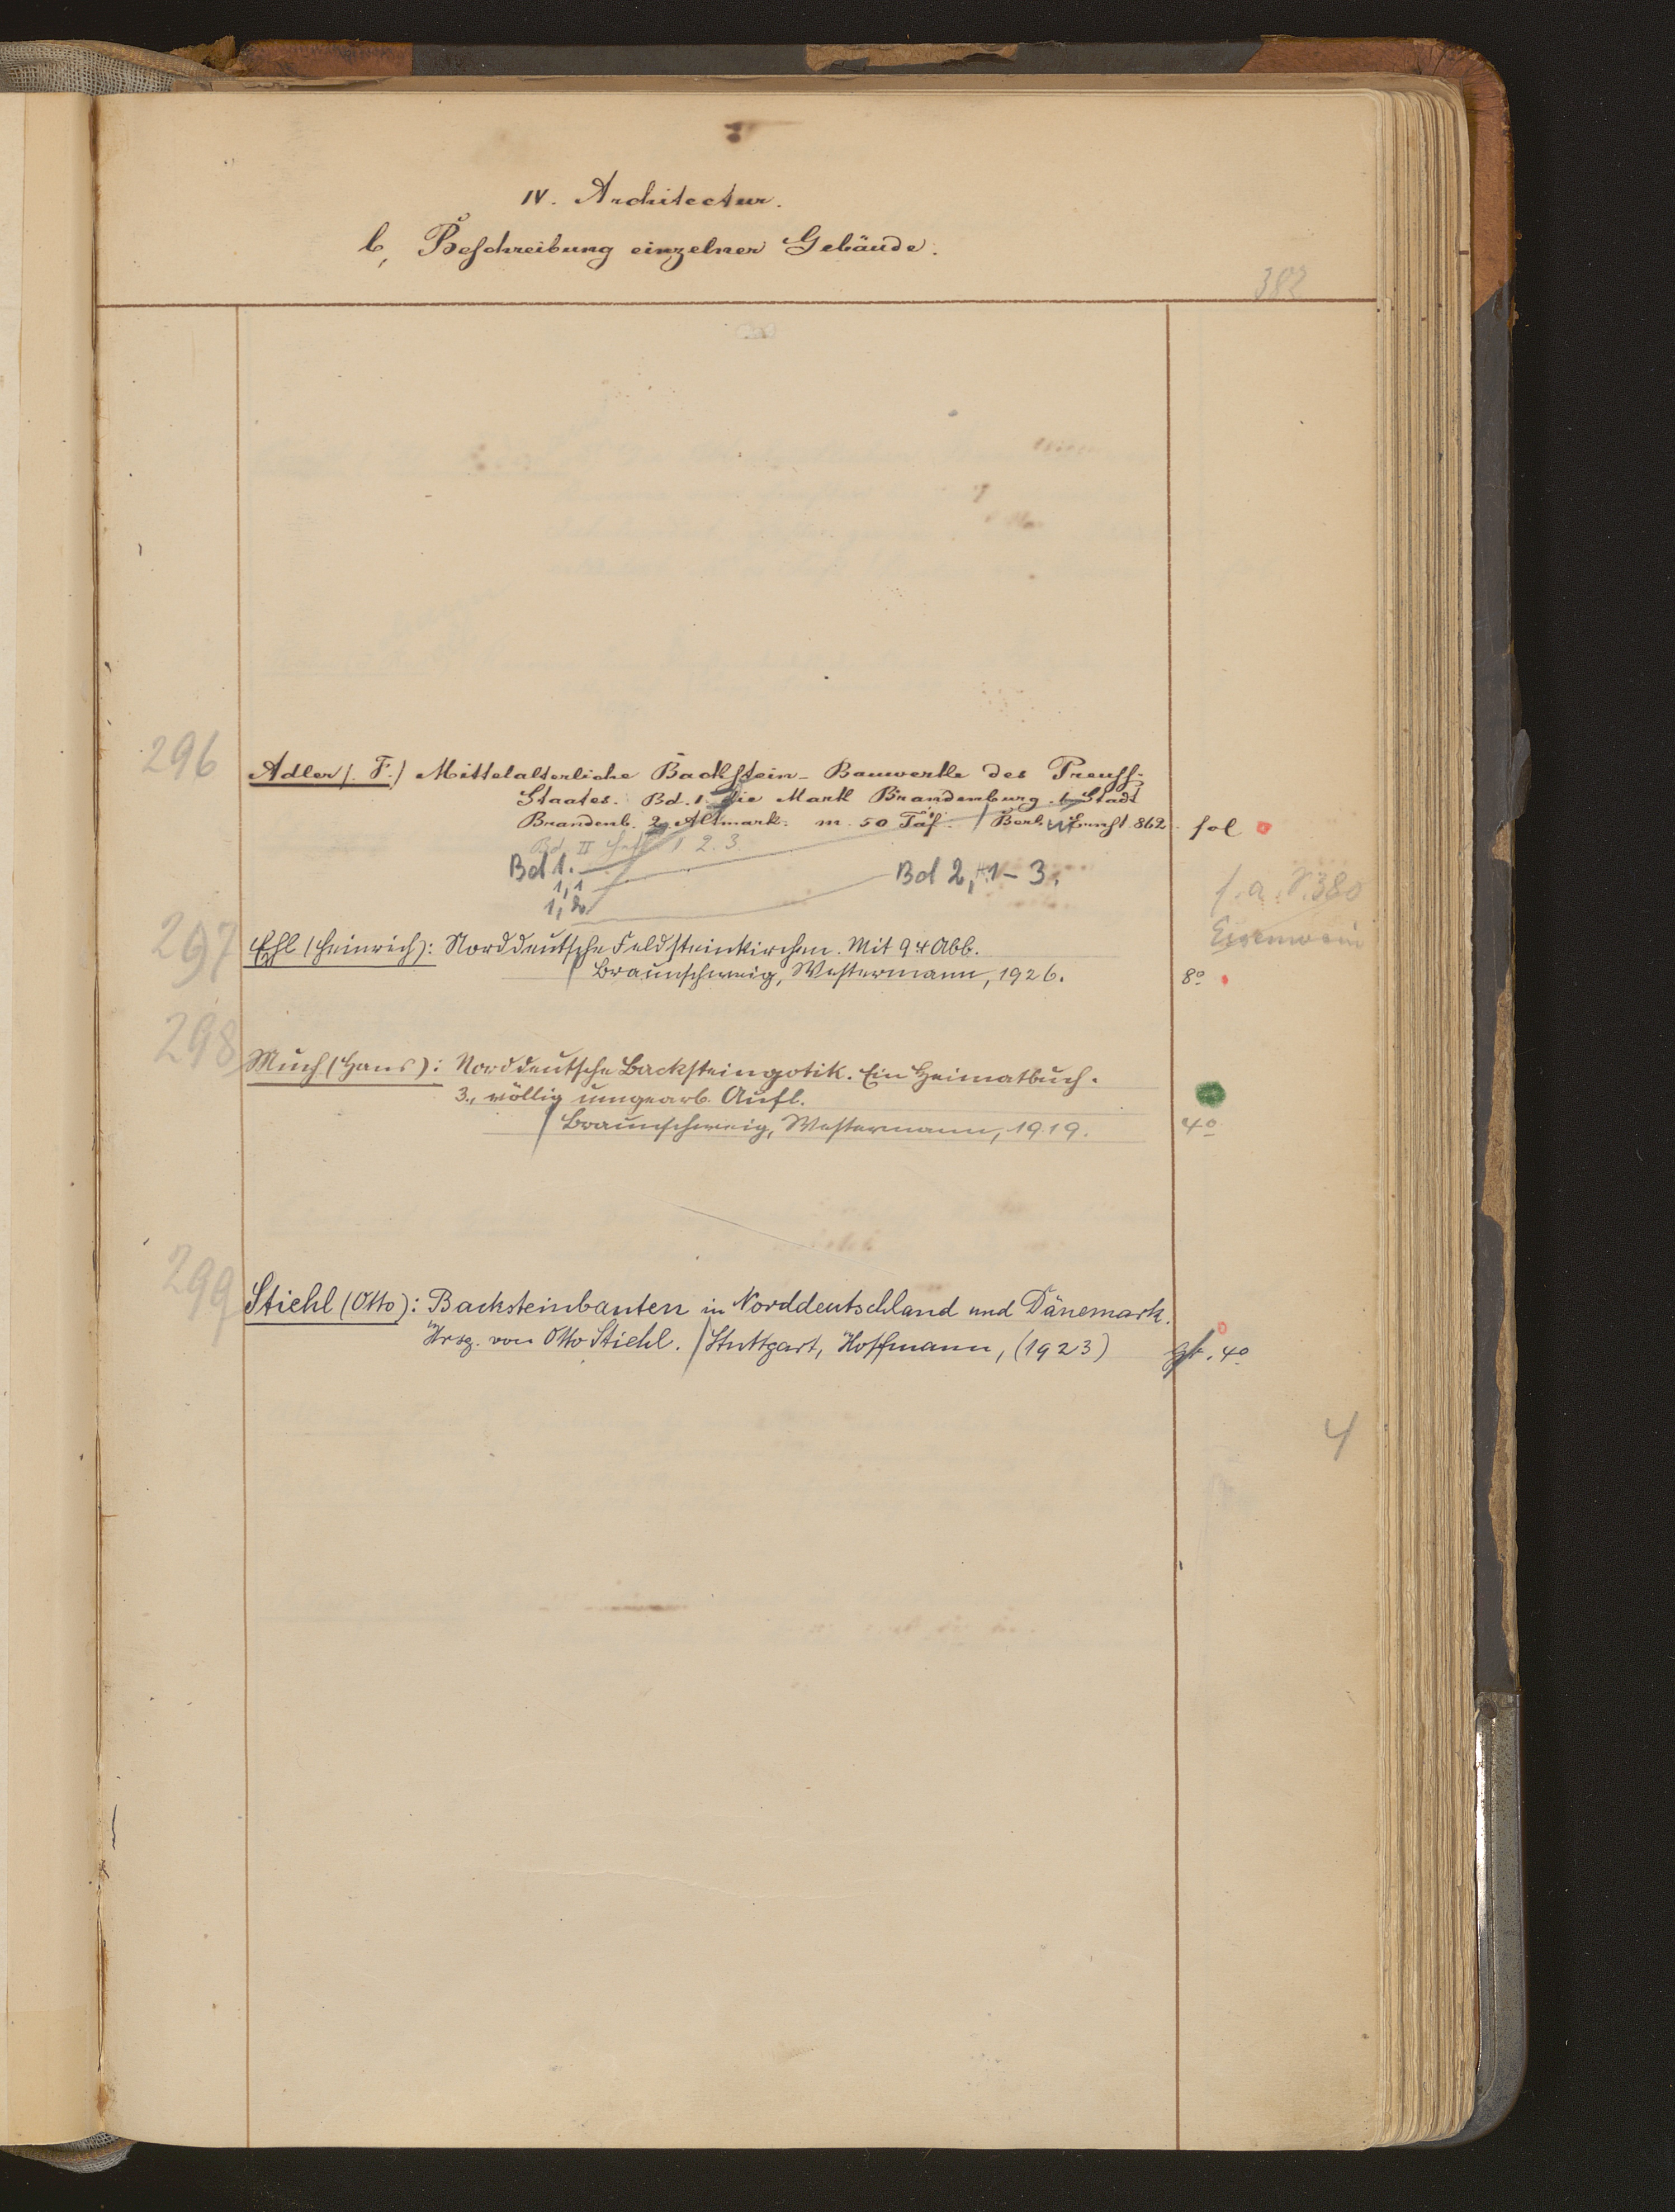 IV. Architectur.
b, Beschreibung einzelner Gebäude.
382
296 Adler (F.) Mittelalterliche Backstein-Bauwerke des Preuss.
Staates. Bd. 1. die Mark Brandenburg. 1. Stadt
Brandenb. 2. Altmark. m. 50 Taf. / Berl. Ernst 862. fol
Bd. II Heft 1 2. 3.
Bd 1. Bd 2, 1-3.
1,1
1,2
s.a. S. 380
Essenwein
297 Ehl (Heinrich): Norddeutsche Feldsteinkirchen. Mit 94 Abb.
/ Braunschweig, Westermann, 1926. 8º
298 Much (Hans): Norddeutsche Backsteingotik. Ein Heimatbuch.
3., völlig umgearb. Aufl.
/ Braunschweig, Westermann, 1919. 4º
299 Stiehl (Otto): Backsteinbauten in Norddeutschland und Dänemark.
Hrsg. von Otto Stiehl. / Stuttgart, Hoffmann, (1923) gr. 4º
4